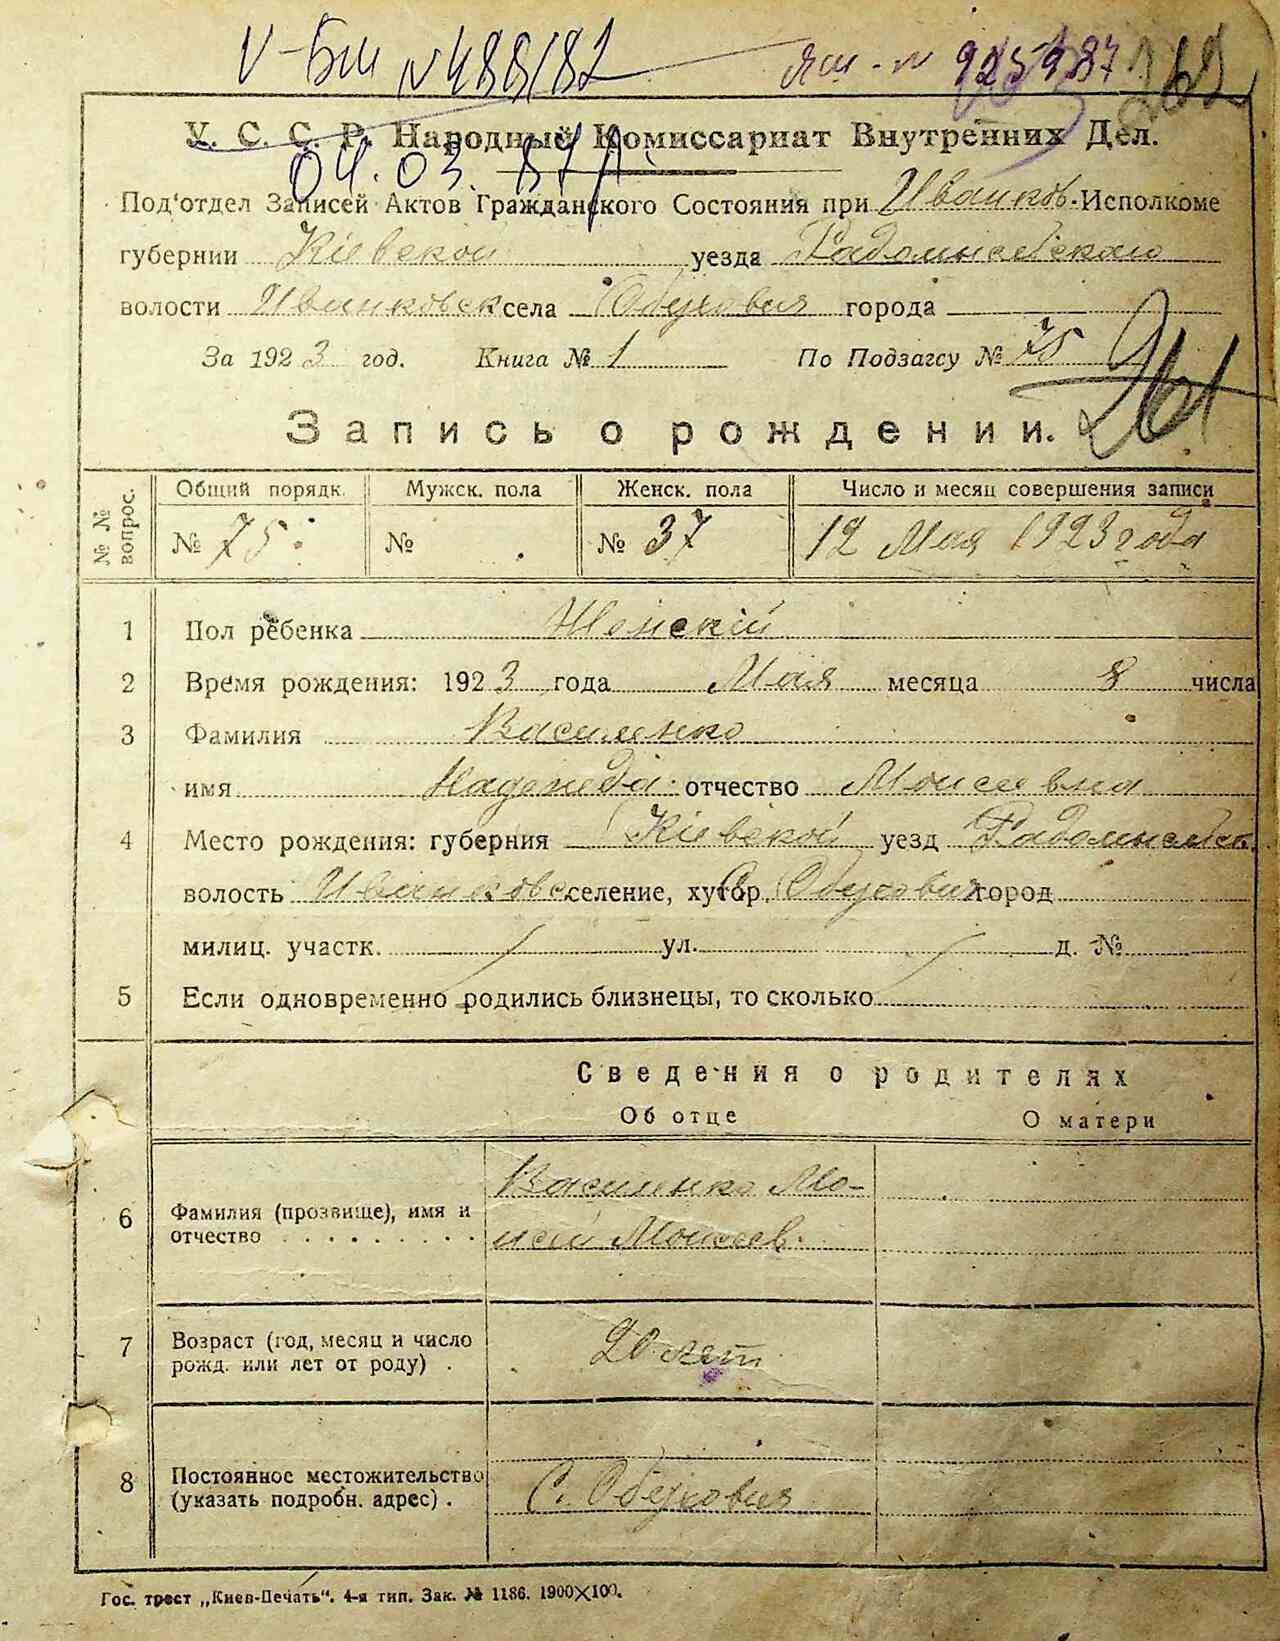 V-БМ №488/82
ЯМ-№ 925487
У. С. С. Р. Народный Комиссариат Внутренних Дел.
04.03.
Под'отдел Записей Актов Гражданского Состояния при Иванков. Исполкоме
губернии Кіевской уезда Радомысльскаго
волости Иванковск села Обуховия города
За 1923 год. Книга № 1 По Подзагсу № 75
261
Запись о рождении.
№ № вопрос. Общий порядк. Мужск. пола Женск. пола Число и месяц совершения записи
№ 75. № № 37 12 Мая 1923 года
1 Пол ребенка Женскій
2 Время рождения: 1923 года Мая месяца 8 числа
3 Фамилия Василенко
имя Надежда отчество Моисеевна
4 Место рождения: губерния Кіевской уезд Радомысльск.
волость Иванковс селение, хутор, С. Обуховия город
милиц. участк. ул. д. №
5 Если одновременно родились близнецы, то сколько
Сведения о родителях
Об отце О матери
6 Фамилия (прозвище), имя и отчество Василенко Мо-
исей Моисеев.
7 Возраст (год, месяц и число рожд. или лет от роду) . 20 лет
8 Постоянное местожительство (указать подробн. адрес) . С. Обуховия
Гос. трест „Киев-Печать“. 4-я тип. Зак. № 1186. 1900×100.